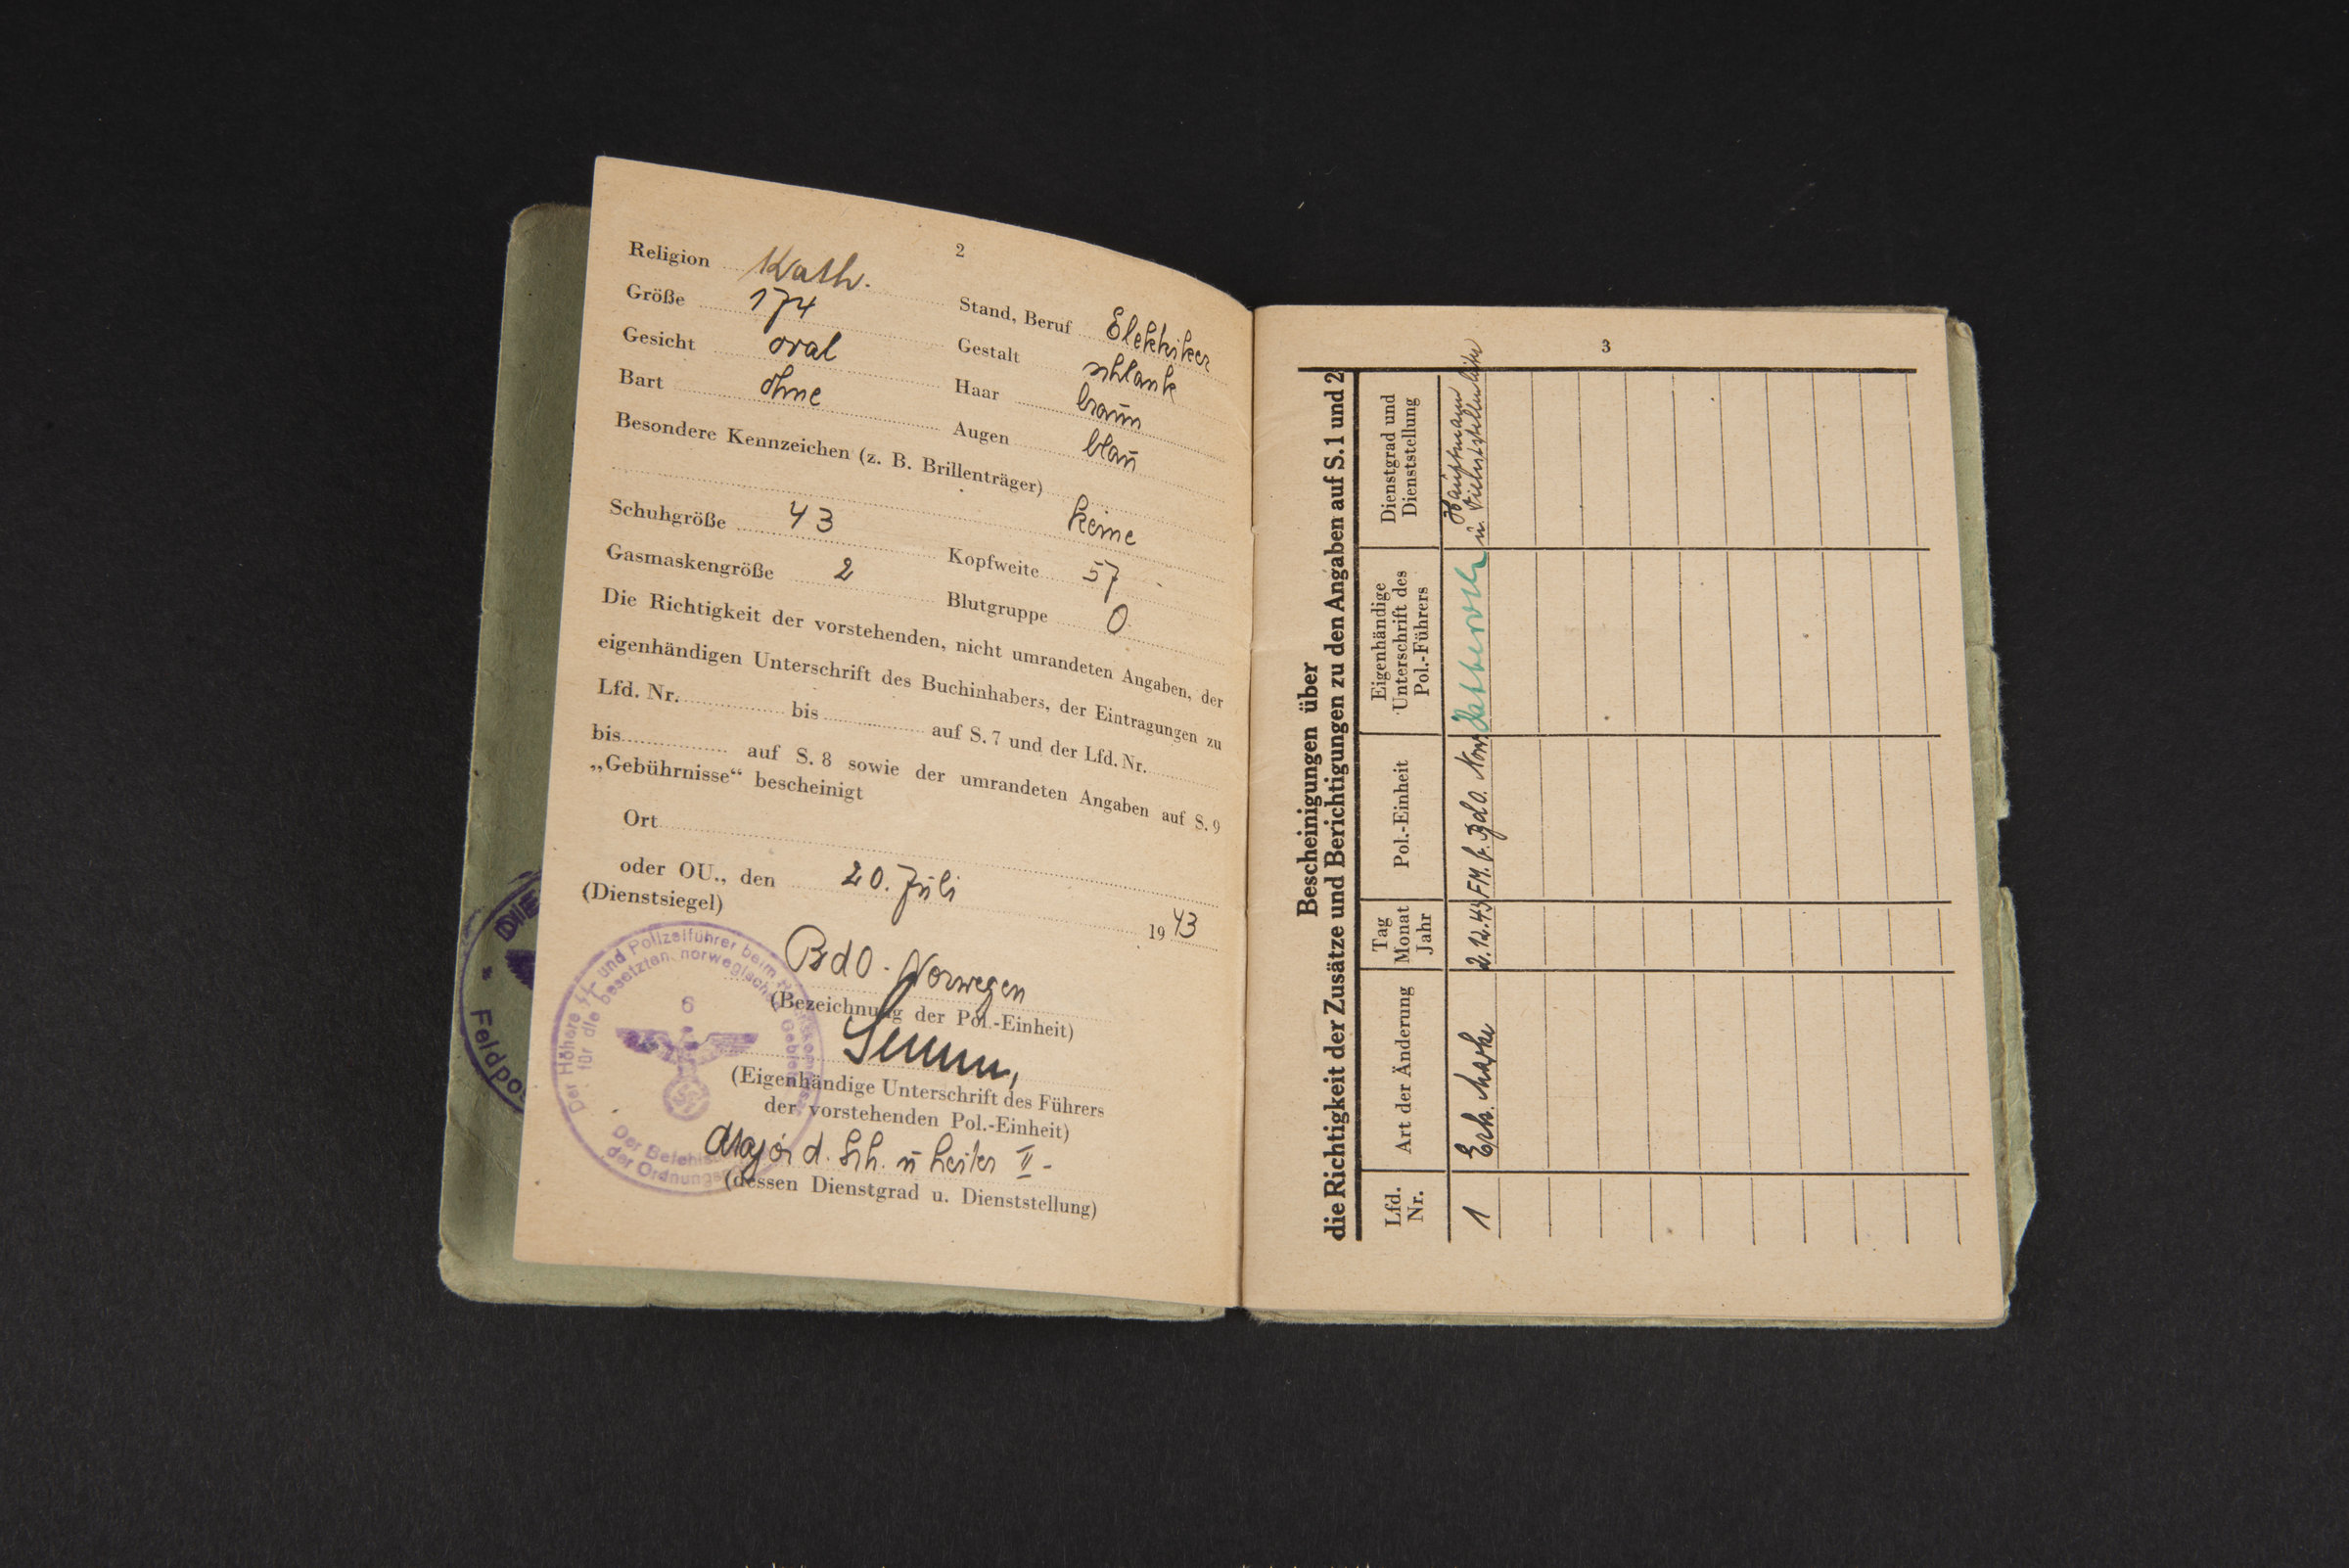 2
Religion Kath.
Größe 174 Stand, Beruf Elektriker
Gesicht oval Gestalt schlank
Bart ohne Haar braun
Augen blau
Besondere Kennzeichen (z. B. Brillenträger)
keine
Schuhgröße 43 Kopfweite 57
Gasmaskengröße 2 Blutgruppe 0
Die Richtigkeit der vorstehenden, nicht umrandeten Angaben, der
eigenhändigen Unterschrift des Buchinhabers, der Eintragungen zu
Lfd. Nr. bis auf S. 7 und der Lfd. Nr.
bis auf S. 8 sowie der umrandeten Angaben auf S. 9
„Gebührnisse“ bescheinigt
Ort
oder OU., den 20. Juli 1943
(Dienstsiegel)
BdO. Norwegen
(Bezeichnung der Pol.-Einheit)
(Eigenhändige Unterschrift des Führers
der vorstehenden Pol.-Einheit)
Major d. Sch. u Leiter II -
(dessen Dienstgrad u. Dienststellung)
Der Höhere SS- und Polizeiführer beim
für die besetzten norwegischen Gebiete
6
Der
der
DIE
Feldpos
3
Bescheinigungen über
die Richtigkeit der Zusätze und Berichtigungen zu den Angaben auf S. 1 und 2
Lfd. Nr.
Art der Änderung
Tag Monat Jahr
Pol.-Einheit
Eigenhändige Unterschrift des Pol.-Führers
Dienstgrad und Dienststellung
1 Erk. Marke 2.12.43 FM. b. BdO. Norw. Hauptmann
u. Dienststellenleiter